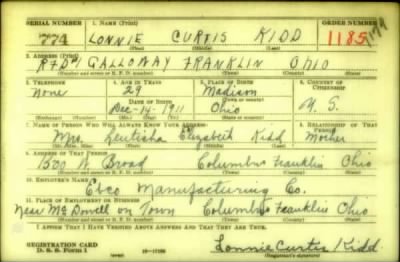 SERIAL NUMBER 1. NAME (Print) ORDER NUMBER
774 LONNIE CURTIS KIDD 1185
(First) (Middle) (Last)
2. ADDRESS (Print)
RFD#1 GALLOWAY FRANKLIN OHIO
(Number and street or R. F. D. number) (Town) (County) (State)
3. TELEPHONE 4. AGE IN YEARS 5. PLACE OF BIRTH 6. COUNTRY OF CITIZENSHIP
None 29 Madison
DATE OF BIRTH (Town or county)
Dec-14-1911 Ohio U. S.
(Mo.) (Day) (Yr.) (State or country)
7. NAME OF PERSON WHO WILL ALWAYS KNOW YOUR ADDRESS 8. RELATIONSHIP OF THAT PERSON
Mrs. Elizabeth Kidd Mother
(Mr., Mrs., Miss) (First) (Middle) (Last)
9. ADDRESS OF THAT PERSON
W. Broad Columbus Franklin Ohio
(Number and street or R. F. D. number) (Town) (County) (State)
10. EMPLOYER'S NAME
Ebco Manufacturing Co.
11. PLACE OF EMPLOYMENT OR BUSINESS
Near McDowell on Town Columbus Franklin Ohio
(Number and street or R. F. D. number) (Town) (County) (State)
I AFFIRM THAT I HAVE VERIFIED ABOVE ANSWERS AND THAT THEY ARE TRUE.
REGISTRATION CARD
D. S. S. Form 1
Lonnie Curtis Kidd
(Registrant's signature)